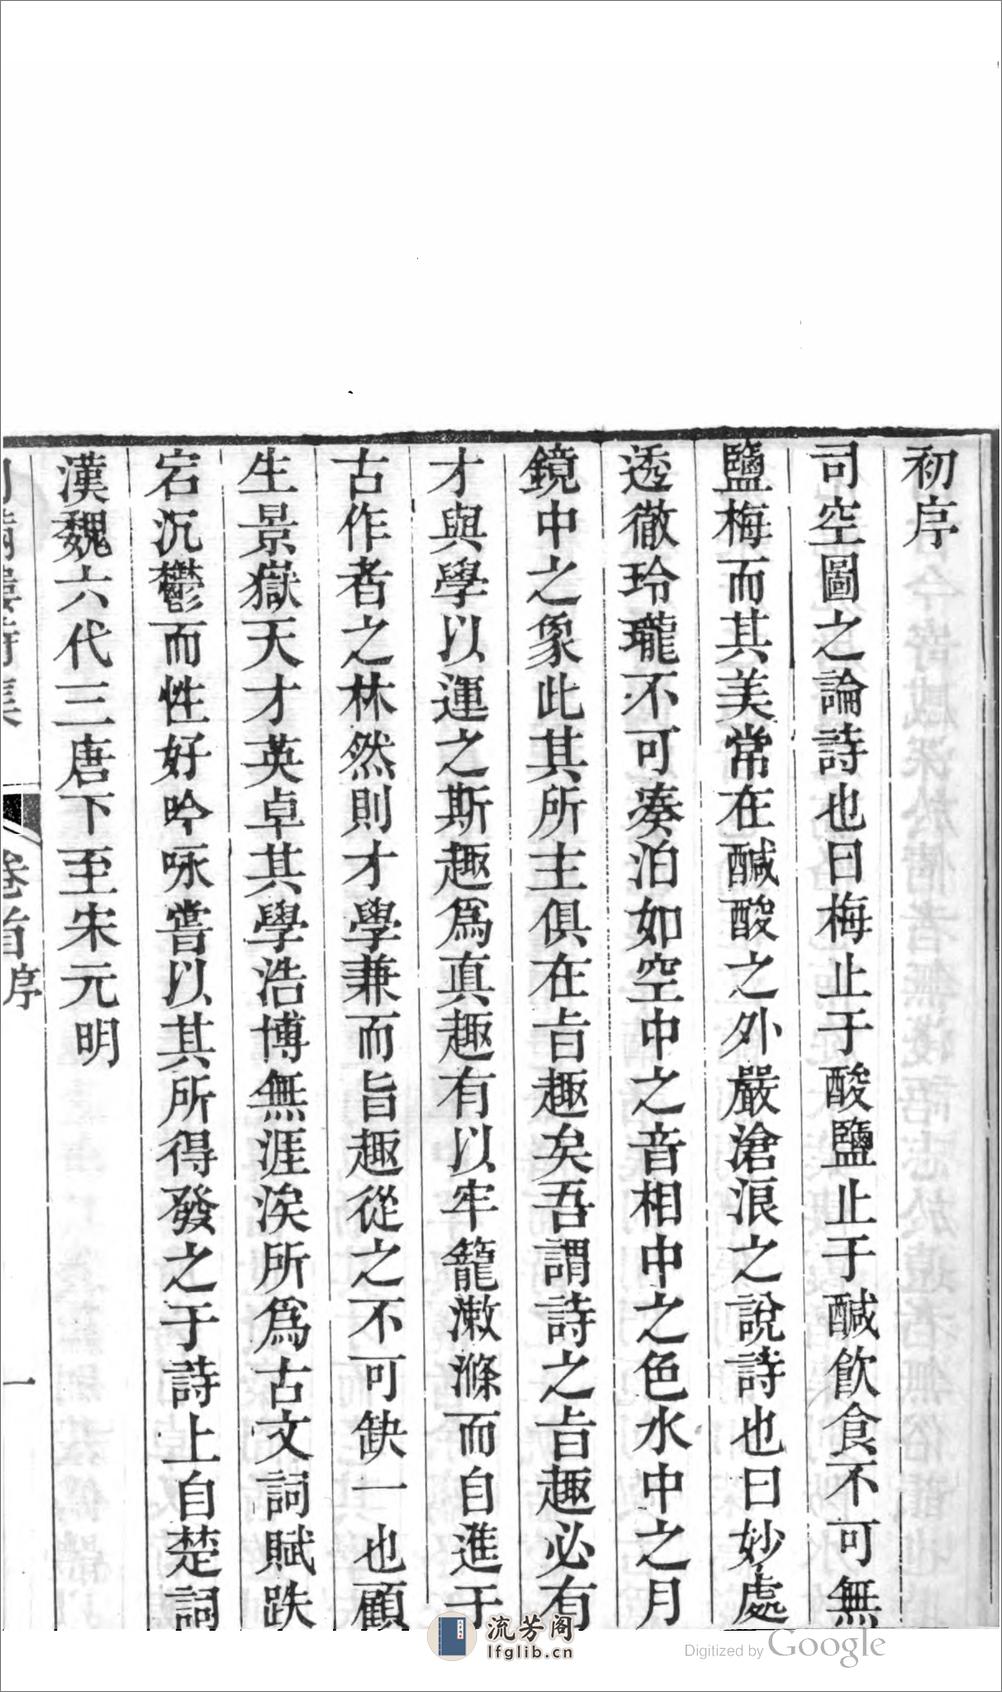 初序
司空圖之論詩也曰梅止于酸鹽止于鹹飲食不可無
鹽梅而其美常在鹹酸之外嚴滄浪之說詩也曰妙處
透徹玲瓏不可凑泊如空中之音相中之色水中之月
鏡中之象此其所主俱在旨趣矣吾謂詩之旨趣必有
才與學以運之斯趣爲真趣有以牢籠漱滌而自進于
古作者之林然則才學兼而旨趣從之不可缺一也顧
生景嶽天才英卓其學浩博無涯涘所爲古文詞賦跌
宕沉鬱而性好吟咏嘗以其所得發之于詩上自楚詞
漢魏六代三唐下至宋元明
卷首序
一
流芳阁
lfglib.cn
Digitized by Google